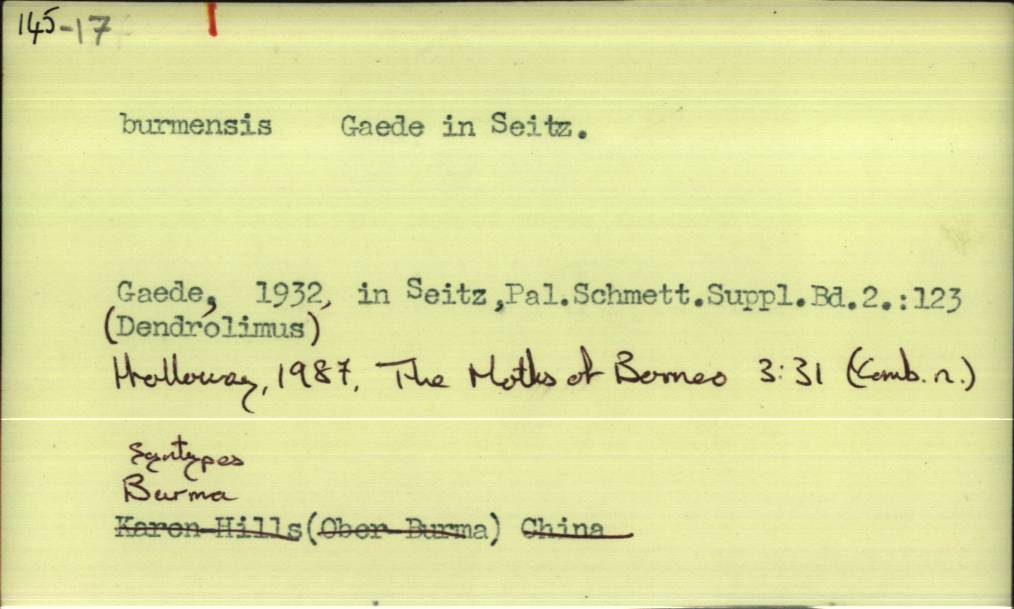 145-17
burmensis Gaede in Seitz.
Gaede, 1932, in Seitz,Pal.Schmett.Suppl.Bd.2.:123
(Dendrolimus)
Holloway, 1987, The Moths of Borneo 3:31 (Comb. n.)
Syntypes
Burma
Karen Hills(Ober Burma) China